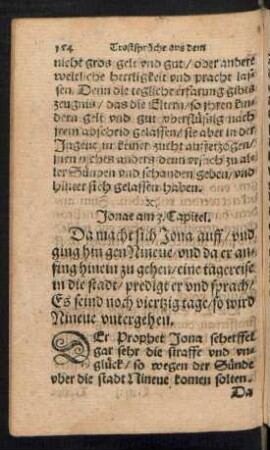 154 Trostsprüche aus dem
nicht gros gelt vnd gut / oder andere
weltliche herrligkeit vnd pracht las-
sen. Denn die teglicht erfarung gibts
zeugnis / das die Eltern / so jhren kin-
dern gelt vnd gut vberflüssig nach
jrem abscheid gelassen / sie aber in der
Jugent in keiner zucht auffertzogen /
jnen nichts anders denn vrsach zu al-
ler Sünden vnd schanden geben / vnd
hinter sich gelassen haben.
X.
Jonae am 3. Capitel.
Da macht sich Jona auff / vnd
ging hin gen Niniue / vnd da er an-
fing hinein zu gehen / eine tagereise
in die stadt / prediget er vnd sprach /
Es seind noch viertzig tage / so wird
Niniue vntergehen.
DEr Prophet Jona scherffet
gar sehr die straffe vnd vn-
glück / so wegen der Sünde
vber die stadt Niniue komen solten.
Da